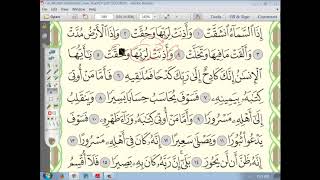 إِذَا ٱلسَّمَآءُ ٱنشَقَّتْ ١ وَأَذِنَتْ لِرَبِّهَا وَحُقَّتْ ٢ وَإِذَا ٱلْأَرْضُ مُدَّتْ
٣ وَأَلْقَتْ مَا فِيهَا وَتَخَلَّتْ ٤ وَأَذِنَتْ لِرَبِّهَا وَحُقَّتْ ٥ يَٰٓأَيُّهَا
ٱلْإِنسَٰنُ إِنَّكَ كَادِحٌ إِلَىٰ رَبِّكَ كَدْحًا فَمُلَٰقِيهِ ٦ فَأَمَّا مَنْ أُوتِىَ
كِتَٰبَهُۥ بِيَمِينِهِۦ ٧ فَسَوْفَ يُحَاسَبُ حِسَابًا يَسِيرًا ٨ وَيَنقَلِبُ
إِلَىٰٓ أَهْلِهِۦ مَسْرُورًا ٩ وَأَمَّا مَنْ أُوتِىَ كِتَٰبَهُۥ وَرَآءَ ظَهْرِهِۦ ١٠ فَسَوْفَ
يَدْعُوا۟ ثُبُورًا ١١ وَيَصْلَىٰ سَعِيرًا ١٢ إِنَّهُۥ كَانَ فِىٓ أَهْلِهِۦ مَسْرُورًا ١٣
إِنَّهُۥ ظَنَّ أَن لَّن يَحُورَ ١٤ بَلَىٰٓ إِنَّ رَبَّهُۥ كَانَ بِهِۦ بَصِيرًا ١٥ فَلَآ أُقْسِمُ